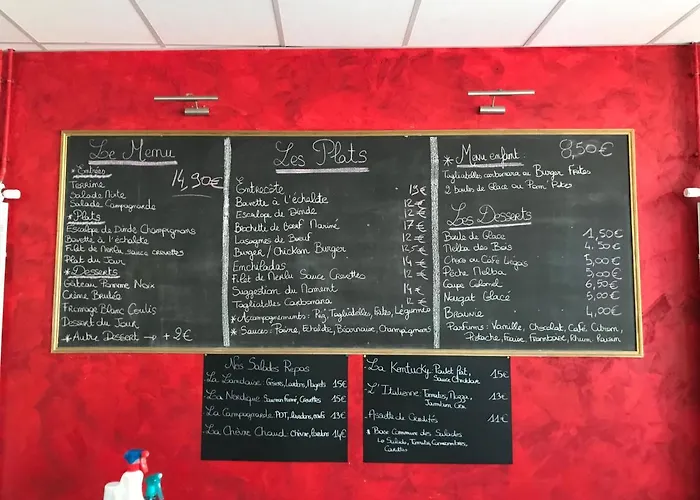 Le Menu
14,90€
* Entrées
Terrine
Salade
Salade Campagnarde
* Plats
Escalope de Dinde Champignons
Bavette à l'échalote
Filet de Merlu sauce crevettes
Plat du Jour
* Desserts
Gâteau Pomme Noix
Crème Brulée
Fromage Blanc Coulis
Dessert du Jour
* Autre Dessert → + 2€
Les Plats
Entrecôte 19€
Bavette à l'échalote 12€
Escalope de Dinde 12€
Brochette de Bœuf Mariné 17€
Lasagnes de Bœuf 12€
Burger / Chicken Burger
Enchiladas 14€
Filet de Merlu Sauce Crevettes 12€
Suggestion du Moment 14€
Tagliatelles Carbonara 12€
* Accompagnements: Riz, Tagliatelles, Frites, Légumes
* Sauces: Poivre, Echalote, Béarnaise, Champignons
* Menu enfant: 8,50€
Tagliatelles carbonara ou Burger Frites
2 boules de Glace ou
Les Desserts
Boule de Glace 1,50€
Melba des Bois 4.50€
Choco ou Café Liégois 5,00€
Pêche Melba 5,00€
Coupe Colonel 6,50€
Nougat Glacé 5,00€
Brownie 4,00€
Parfums: Vanille, Chocolat, Café, Citron,
Pistache, Fraise, Framboise, Rhum, Raisin
Nos Salades Repas
La Landaise: Gésiers, Lardons, 15€
La Nordique: Saumon fumé, Crevettes 15€
La Campagnarde: PDT, lardons, oeufs 13€
La Chèvre Chaud: Chèvre, lardons 14€
La Kentucky: Poulet 15€
Sauce Cheddar
L'Italienne: Tomates, Mozza, 13€
Jambon Cru
Assiette de Crudités 11€
* Base Commune des Salades
La Salade, Tomates, Concombres,
Carottes